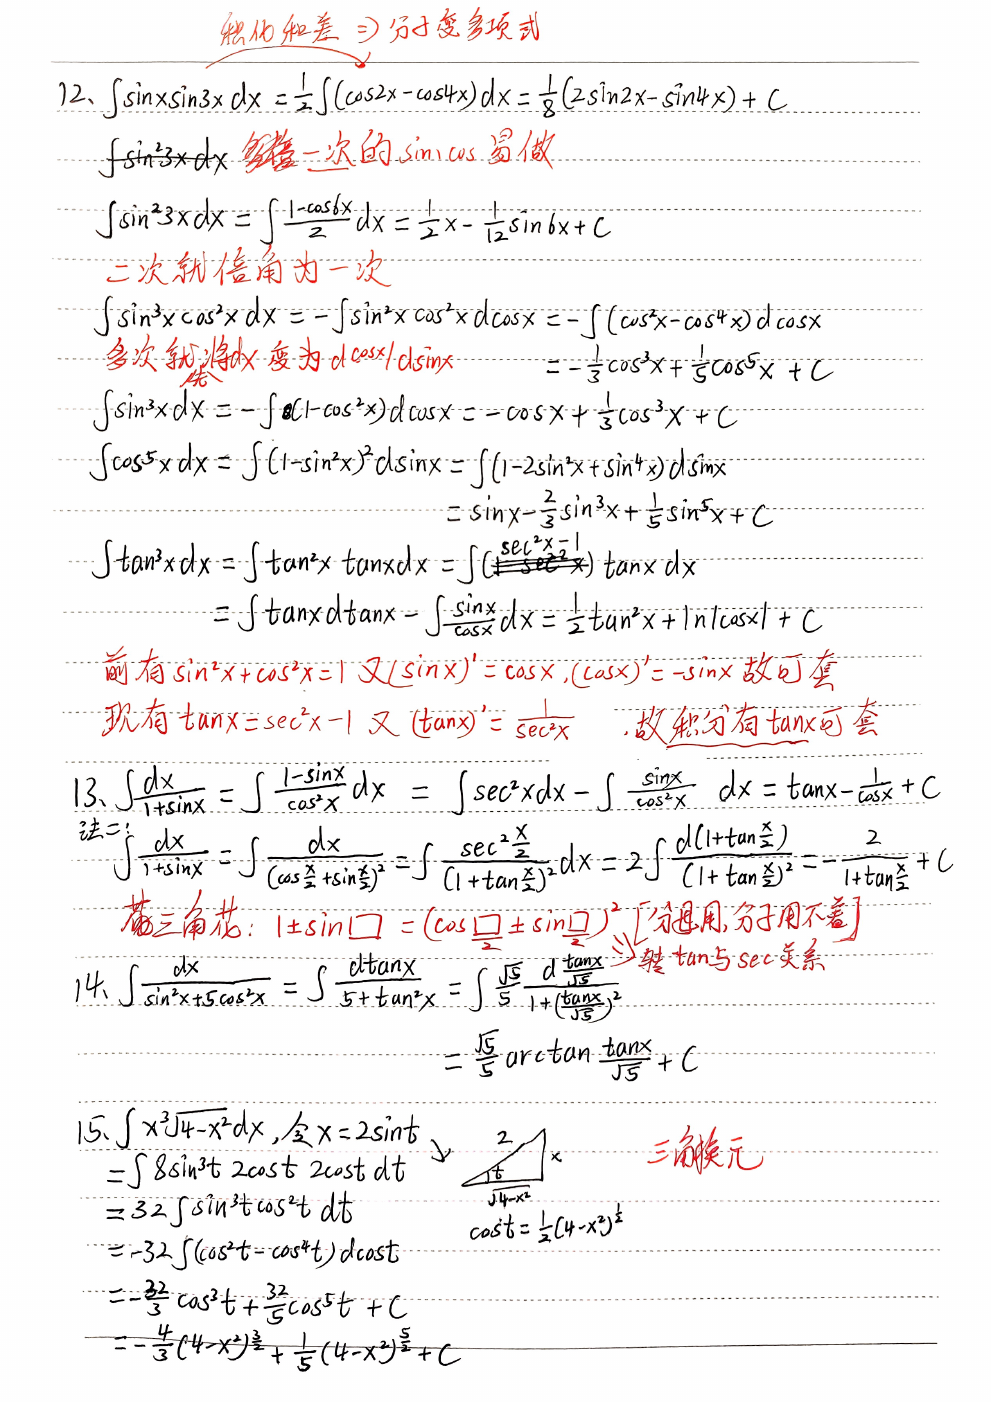 积化和差 => 分子变多项式
12、∫sinxsin3x dx = 1/2 ∫(cos2x-cos4x)dx = 1/8 (2sin2x-sin4x) + C
∫sin²3x dx 一次的sin、cos易做
∫sin²3x dx = ∫ (1-cos6x)/2 dx = 1/2 x - 1/12 sin6x + C
二次就倍角为一次
∫sin³x cos²x dx = -∫sin²x cos²x dcosx = -∫(cos²x-cos⁴x) dcosx
多次就先将dx变为dcosx/dsinx = -1/3 cos³x + 1/5 cos⁵x + C
∫sin³x dx = -∫(1-cos²x)dcosx = -cosx + 1/3 cos³x + C
∫cos⁵x dx = ∫(1-sin²x)²dsinx = ∫(1-2sin²x+sin⁴x)dsinx
= sinx - 2/3 sin³x + 1/5 sin⁵x + C
∫tan³x dx = ∫tan²x tanx dx = ∫(sec²x-1) tanx dx
= ∫tanx dtanx - ∫ sinx/cosx dx = 1/2 tan²x + ln|cosx| + C
前有sin²x+cos²x=1 又(sinx)'=cosx,(cosx)'=-sinx 故可套
现有tanx=sec²x-1 又 (tanx)'= 1/sec²x 故积分有tanx可套
13、∫ dx/(1+sinx) = ∫ (1-sinx)/cos²x dx = ∫sec²xdx - ∫ sinx/cos²x dx = tanx - 1/cosx + C
法二: ∫ dx/(1+sinx) = ∫ dx/(cos x/2 + sin x/2)² = ∫ sec² x/2 /(1+tan x/2)² dx = 2∫ d(1+tan x/2)/(1+tan x/2)² = - 2/(1+tan x/2) + C
三角花: 1±sin□ = (cos □/2 ± sin □/2)² [分母用,分子用不着]
=> 转tan与sec关系
14、∫ dx/(sin²x+5cos²x) = ∫ dtanx/(5+tan²x) = ∫ √5/5 d(tanx/√5)/(1+(tanx/√5)²)
= √5/5 arctan tanx/√5 + C
15、∫x³√(4-x²)dx, 令x=2sint 2 t x √(4-x²) 三角换元
=∫8sin³t 2cost 2cost dt
=32∫sin³tcos²t dt cost = 1/2 (4-x²)^(1/2)
=-32∫(cos²t-cos⁴t)dcost
=-32/3 cos³t + 32/5 cos⁵t + C
=-4/3 (4-x²)^(3/2) + 1/5 (4-x²)^(5/2) + C